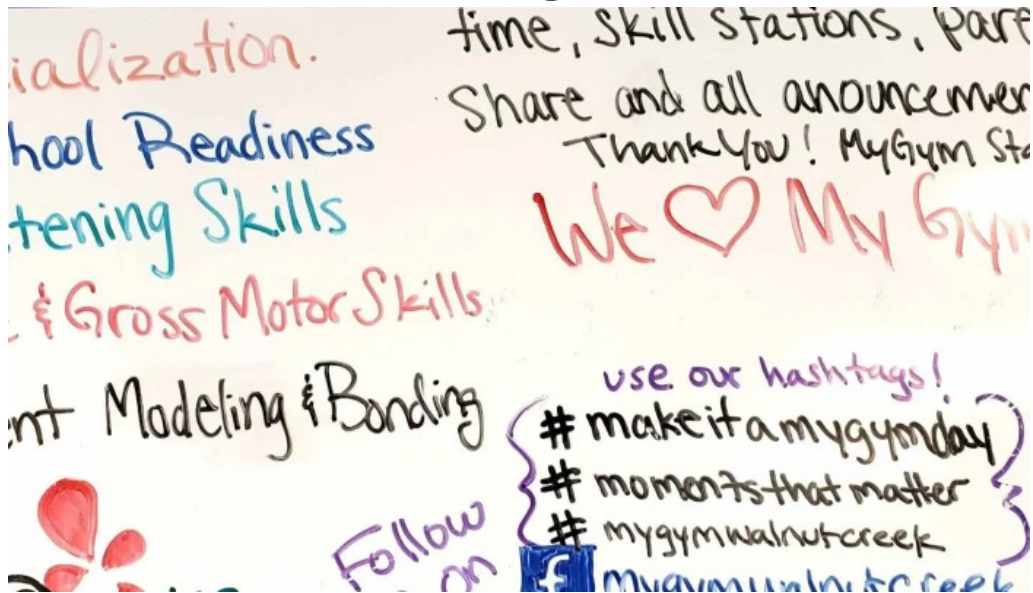 ialization.
hool Readiness
tening Skills
& Gross Motor Skills
ent Modeling & Bonding
time, Skill Stations, Pare
Share and all anouncemen
Thank You! MyGym Sta
We ♡ My Gym
use our hashtags!
# makeitamygymday
# momentsthatmatter
# mygymwalnutcreek
Follow
on
f mygymwalnutcreek